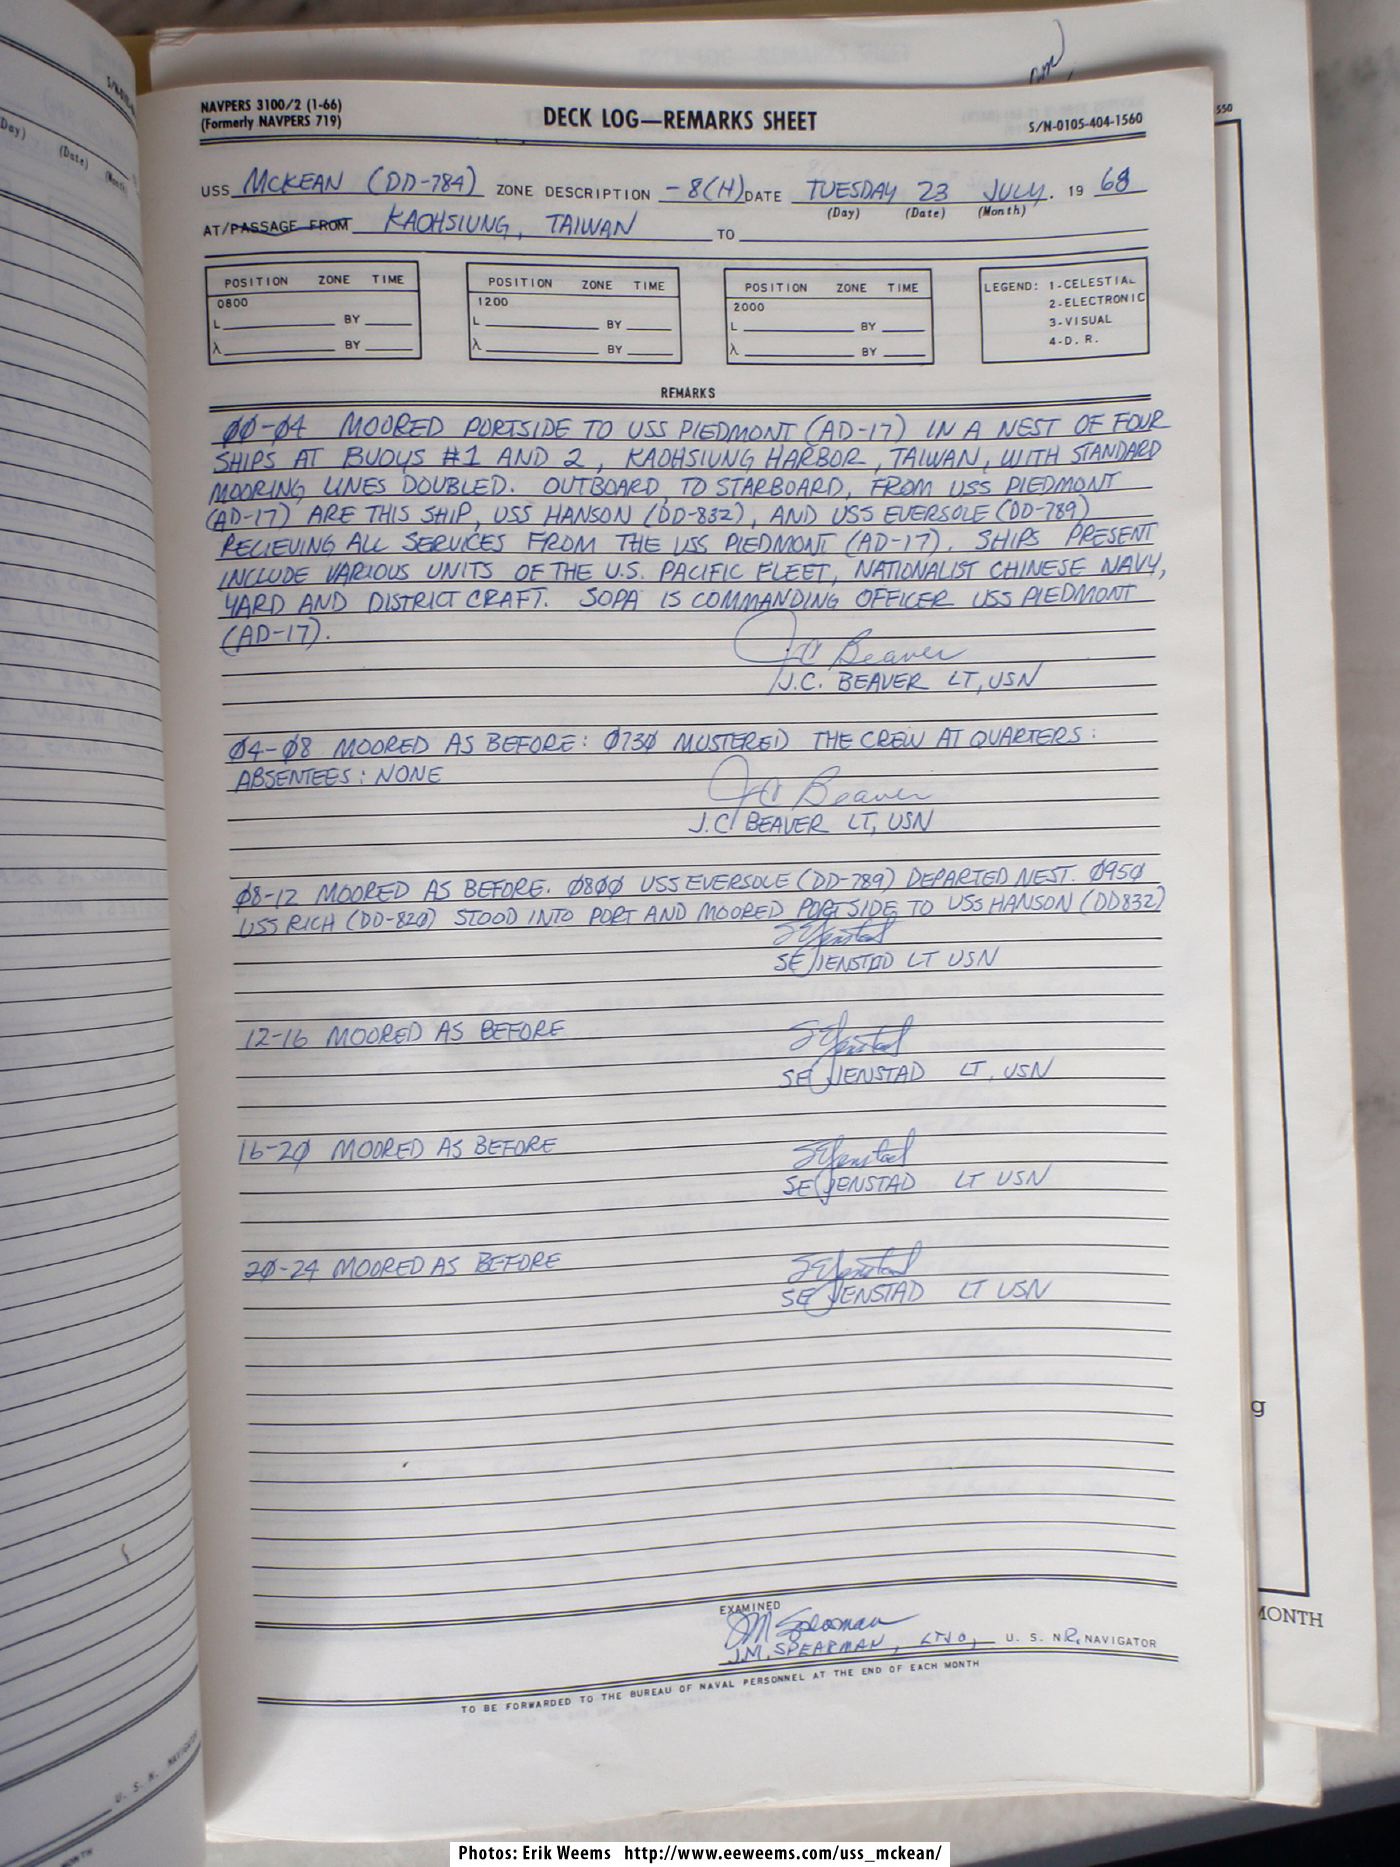 NAVPERS 3100/2 (1-66)
(Formerly NAVPERS 719)
DECK LOG—REMARKS SHEET
S/N-0105-404-1560
USS MCKEAN (DD-784) ZONE DESCRIPTION -8(H) DATE TUESDAY 23 JULY. 19 68
(Day) (Date) (Month)
AT/PASSAGE FROM KAOHSIUNG, TAIWAN TO
POSITION ZONE TIME
0800
L BY
λ BY
POSITION ZONE TIME
1200
L BY
λ BY
POSITION ZONE TIME
2000
L BY
λ BY
LEGEND: 1-CELESTIAL
2-ELECTRONIC
3-VISUAL
4-D. R.
REMARKS
00-04 MOORED PORTSIDE TO USS PIEDMONT (AD-17) IN A NEST OF FOUR
SHIPS AT BUOYS #1 AND 2, KAOHSIUNG HARBOR, TAIWAN, WITH STANDARD
MOORING LINES DOUBLED. OUTBOARD, TO STARBOARD, FROM USS PIEDMONT
(AD-17) ARE THIS SHIP, USS HANSON (DD-832), AND USS EVERSOLE (DD-789)
RECIEVING ALL SERVICES FROM THE USS PIEDMONT (AD-17). SHIPS PRESENT
INCLUDE VARIOUS UNITS OF THE U.S. PACIFIC FLEET, NATIONALIST CHINESE NAVY,
YARD AND DISTRICT CRAFT. SOPA IS COMMANDING OFFICER USS PIEDMONT
(AD-17).
JC Beaver
J.C. BEAVER LT, USN
04-08 MOORED AS BEFORE: 0730 MUSTERED THE CREW AT QUARTERS:
ABSENTEES: NONE
JC Beaver
J.C. BEAVER LT, USN
08-12 MOORED AS BEFORE. 0800 USS EVERSOLE (DD-789) DEPARTED NEST. 0950
USS RICH (DD-820) STOOD INTO PORT AND MOORED PORTSIDE TO USS HANSON (DD832)
SE Jenstad
SE JENSTAD LT USN
12-16 MOORED AS BEFORE
SE Jenstad
SE JENSTAD LT, USN
16-20 MOORED AS BEFORE
SE Jenstad
SE JENSTAD LT USN
20-24 MOORED AS BEFORE
SE Jenstad
SE JENSTAD LT USN
EXAMINED
JM Spearman
J.M. SPEARMAN, LTJG, U. S. NR. NAVIGATOR
TO BE FORWARDED TO THE BUREAU OF NAVAL PERSONNEL AT THE END OF EACH MONTH
Photos: Erik Weems http://www.eeweems.com/uss_mckean/